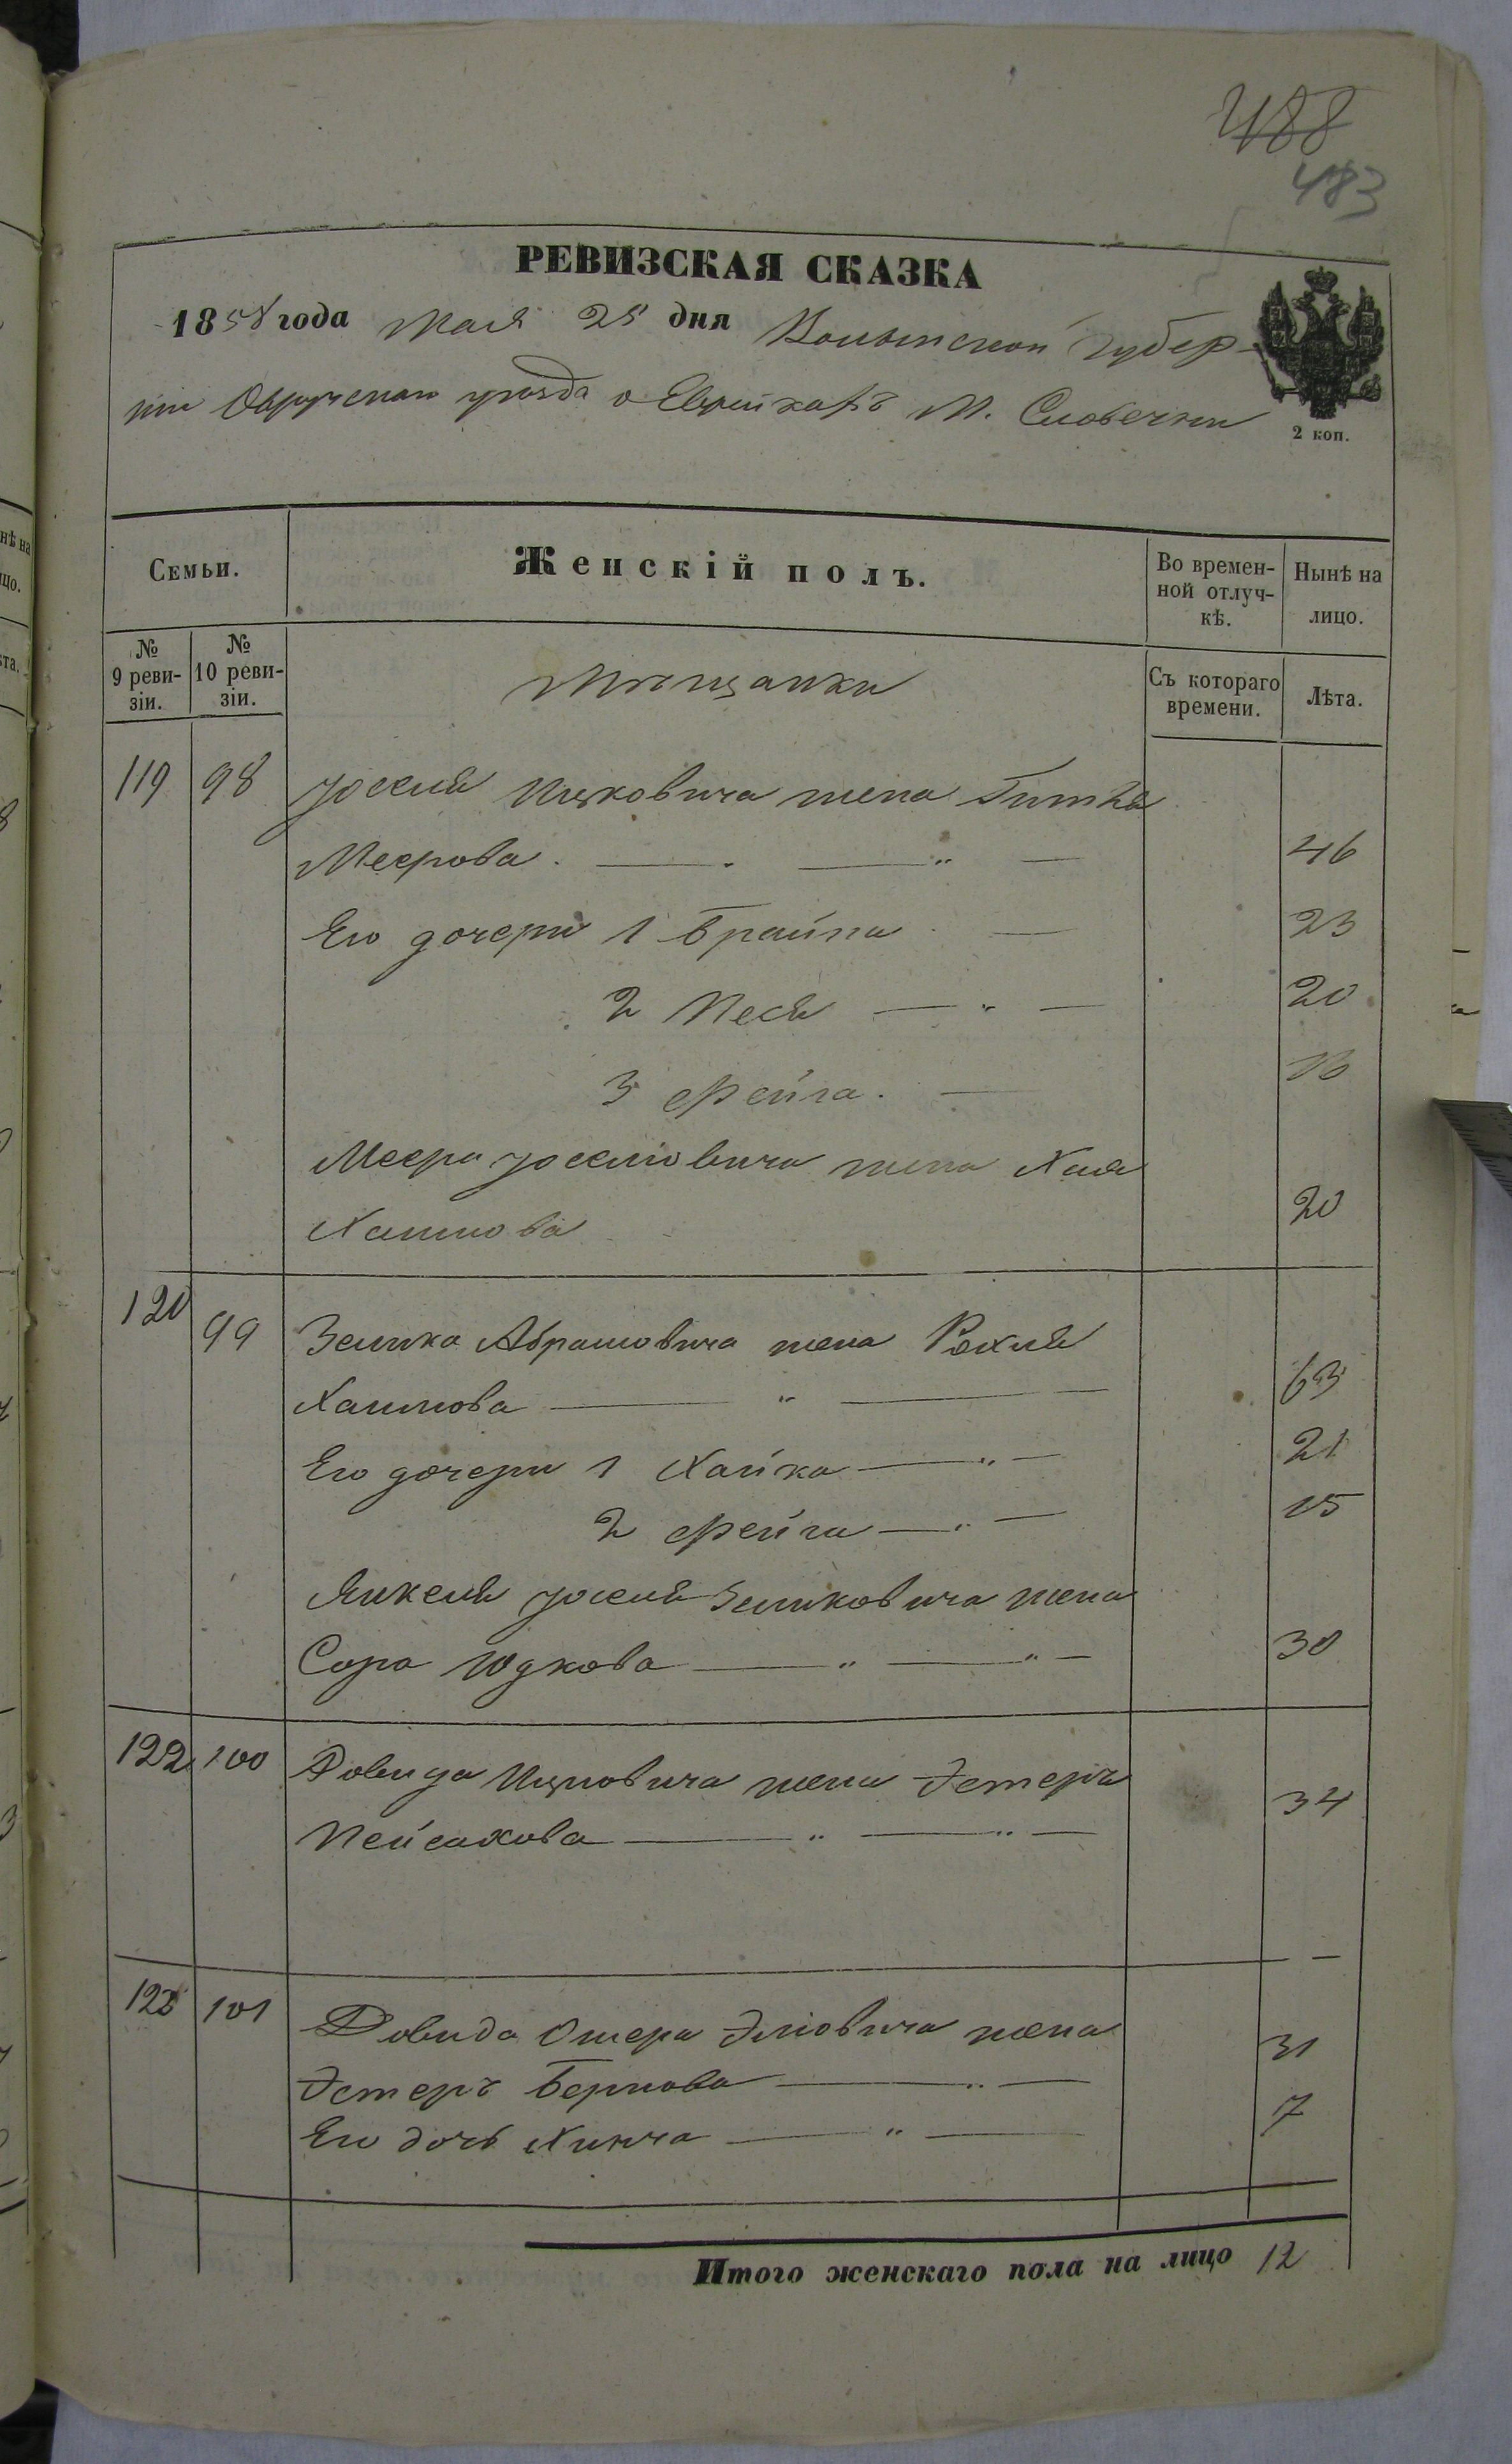 488
483
РЕВИЗСКАЯ СКАЗКА
1858 года Мая 25 дня Волынской Губер-
ніи Овручскаго уѣзда о Еврейкахъ М. Словечны
2 коп.
Семьи.
Женскій полъ.
Во времен-
ной отлуч-
кѣ.
Нынѣ на
лицо.
№
9 реви-
зіи.
№
10 реви-
зіи.
Мѣщанки
Съ котораго
времени.
Лѣта.
119 98 Іоселя Ицковича жена Гитля
Меерова 46
Его дочери 1 Брайна 23
2 Песя 20
3 Фейга.
Меера Іоселовича жена Хая
Хаимова 20
120 99 Зелика Абрамовича жена Рохля
Хаимова 63
Его дочери 1 Хайка 21
2 Фейга 15
Янкеля Іоселя Зеликовича жена
Сора Юдкова 30
122 100 Довида Ицковича жена Эстеръ
Пейсахова 34
101 Довида Ошера Эліовича жена
Эстеръ Беркова 31
Его дочь Хинча 7
Итого женскаго пола на лицо 12